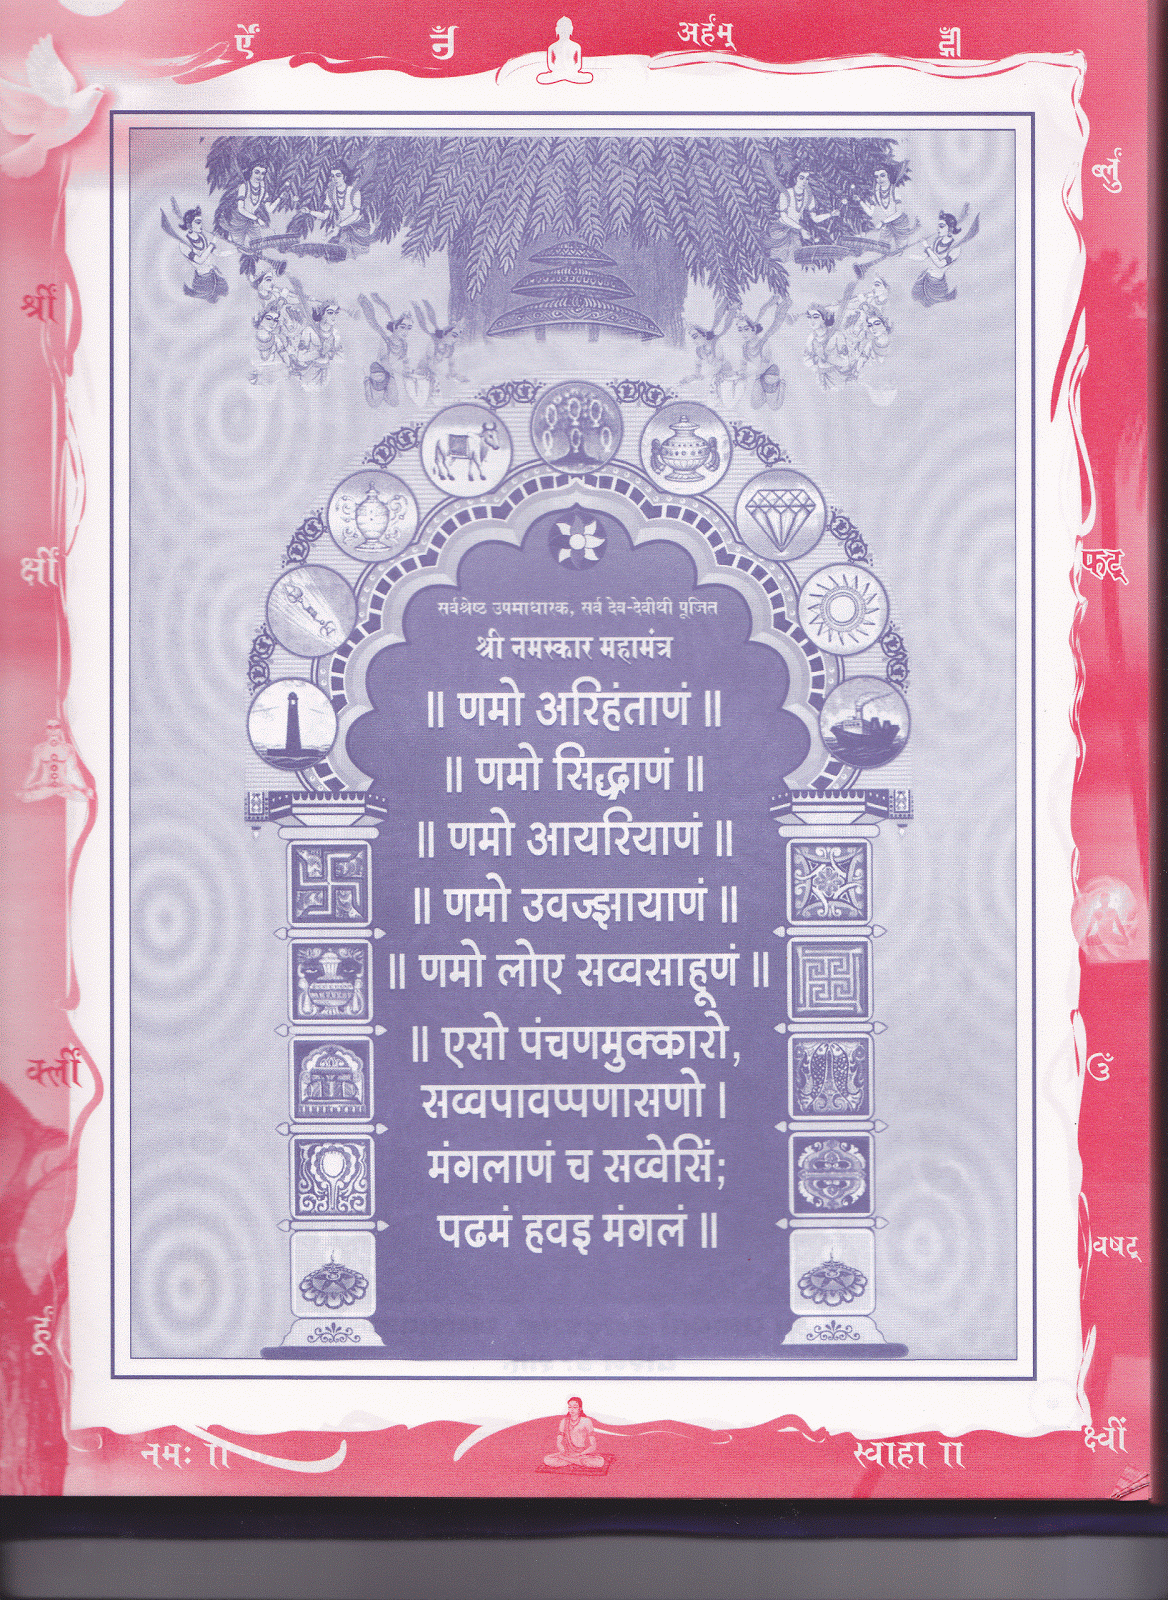 ऐँ
अर्हम्
श्रीं
क्षीं
फट्
सर्वश्रेष्ठ उपमाधारक, सर्व देव-देवीथी पूजित
श्री नमस्कार महामंत्र
॥ णमो अरिहंताणं ॥
॥ णमो सिद्धाणं ॥
॥ णमो आयरियाणं ॥
॥ णमो उवज्झायाणं ॥
॥ णमो लोए सव्वसाहूणं ॥
॥ एसो पंचणमुक्कारो,
सव्वपावप्पणासणो ।
मंगलाणं च सव्वेसिं;
पढमं हवइ मंगलं ॥
क्लीं
ॐ
वषट्
नमः ॥
स्वाहा ॥
क्ष्वीं